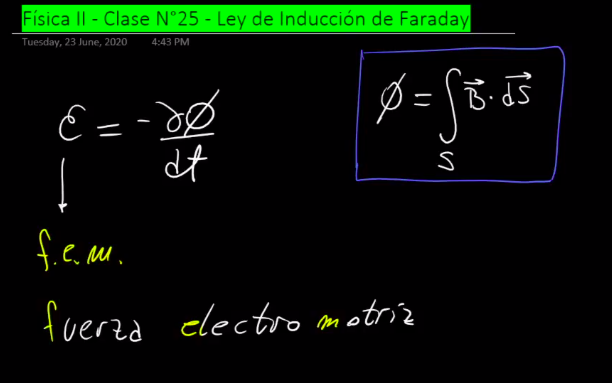 Física II - Clase N°25 - Ley de Inducción de Faraday
Tuesday, 23 June, 2020 4:43 PM
ε = -∂Ø/dt
Ø = ∫_S B⃗ · dS⃗
f.e.m.
fuerza electro motriz